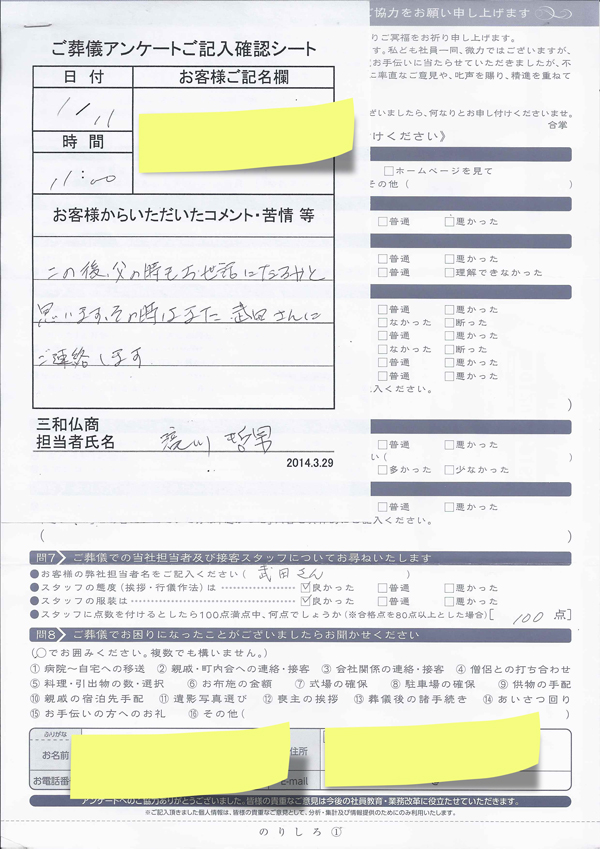 ご協力をお願い申し上げます
りご冥福をお祈り申し上げます。
す。私ども社員一同、微力ではございますが、
お手伝いに当たらせていただきましたが、不
に率直なご意見や、叱声を賜り、精進を重ねて
ざいましたら、何なりとお申し付けくださいませ。
合掌
けください》
□ホームページを見て
その他（
□普通 □悪かった
□普通 □悪かった
□普通 □理解できなかった
□普通 □悪かった
□なかった □断った
□普通 □悪かった
□なかった □断った
□普通 □悪かった
入ください。
）
□普通 □悪かった
い（ ）
□多かった □少なかった
□普通 □悪かった
ご記入ください。
（ ）
ご葬儀アンケートご記入確認シート
日付 お客様ご記名欄
1/11
時間
11:00
お客様からいただいたコメント・苦情 等
この後、父の時もお世話になるかと
思います。その時はまた 武田さんに
ご連絡します
三和仏商
担当者氏名
2014.3.29
問7 ご葬儀での当社担当者及び接客スタッフについてお尋ねいたします
●お客様の弊社担当者名をご記入ください（ 武田さん ）
●スタッフの態度（挨拶・行儀作法）は ☑良かった □普通 □悪かった
●スタッフの服装は ☑良かった □普通 □悪かった
●スタッフに点数を付けるとしたら100点満点中、何点でしょうか（※合格点を80点以上とした場合）［ 100 点］
問8 ご葬儀でお困りになったことがございましたらお聞かせください
（○でお囲みください。複数でも構いません。）
①病院～自宅への移送 ②親戚・町内会への連絡・接客 ③会社関係の連絡・接客 ④僧侶との打ち合わせ
⑤料理・引出物の数・選択 ⑥お布施の金額 ⑦式場の確保 ⑧駐車場の確保 ⑨供物の手配
⑩親戚の宿泊先手配 ⑪遺影写真選び ⑫喪主の挨拶 ⑬葬儀後の諸手続き ⑭あいさつ回り
⑮お手伝いの方へのお礼 ⑯その他（ ）
ふりがな
お名前 住所
お電話番 e-mail
アンケートへのご協力ありがとうございました。皆様の貴重なご意見は今後の社員教育・業務改革に役立たせていただきます。
※ご記入頂きました個人情報は、皆様の貴重なご意見として、分析・集計及び情報提供のためにのみ利用いたします。
のりしろ①